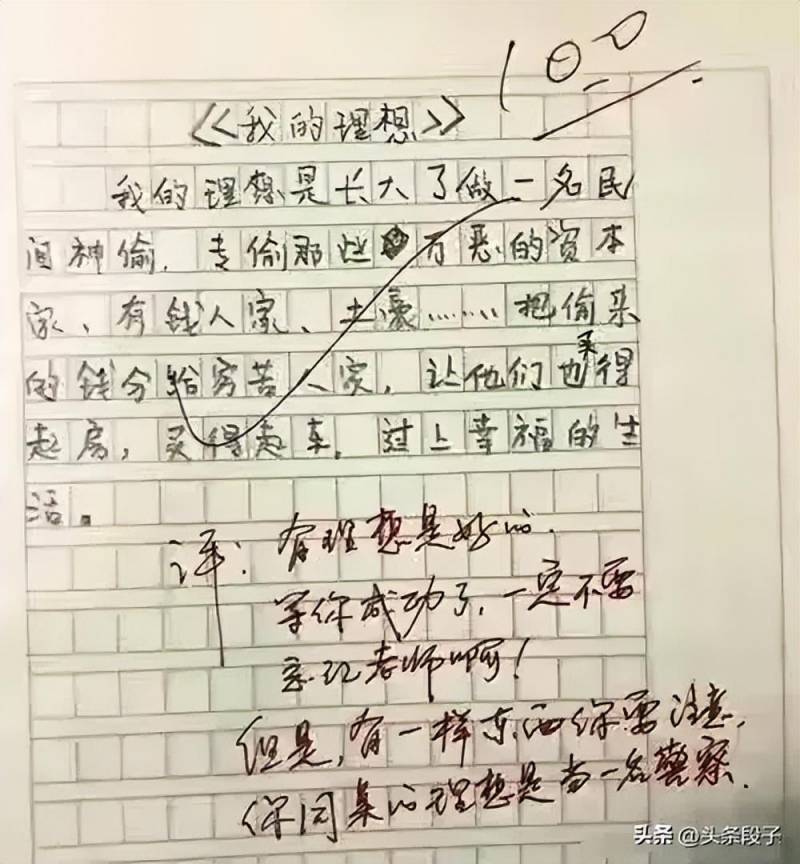 100
《我的理想》
我的理想是长大了做一名民
间神偷,专偷那些万恶的资本
家、有钱人家、土豪……把偷来
的钱分给穷苦人家,让他们也买得
起房,买得起车,过上幸福的生
活。
评:有理想是好的.
等你成功了,一定不要
忘记老师啊!
但是,有一样东西你要注意,
你同桌的理想是当一名警察.
头条 @头条段子